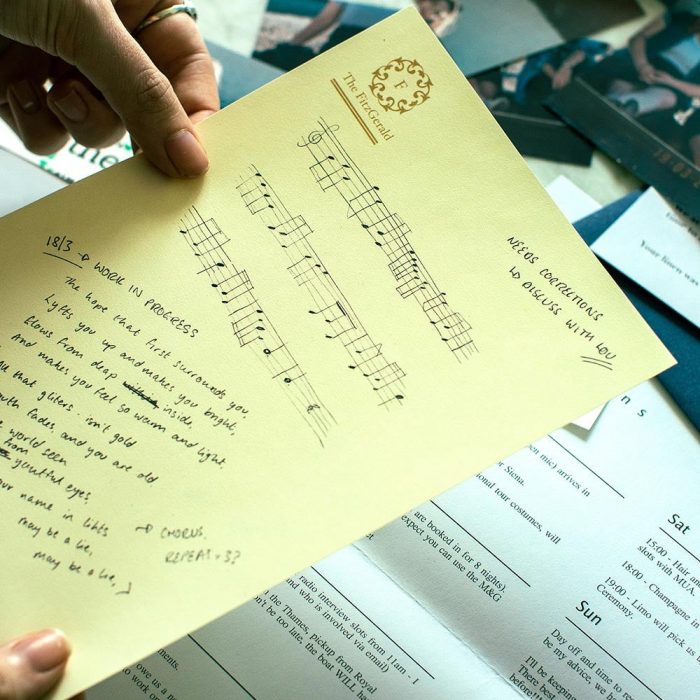 F
The FitzGerald
NEEDS CORRECTIONS
↳ DISCUSS WITH LOU
18/3 → WORK IN PROGRESS
The hope that first surrounds you,
Lyfts you up and makes you bright,
flows from deap inside,
And makes you feel so warm and light,
that gliters - isn't gold
fades, and you are old
world seen
from
youtful eyes
your name in lihts
may be a lie,
may be a lie,
→ CHORUS.
REPEAT x 3?
the
Your linen was
n s
mic) arrives in
Siena.
tional tour costumes, will
are booked in for 8 nights).
expect you can use the M&G
radio interview slots from 11am - I
and who is involved via email)
the Thames, pickup from Royal
n't be too late, the boat WILL
ments.
owe us a
to work
Sat
15:00 - Hair and
slots with MUA.
18:00 - Champagne in
19:00 - Limo will pick us
Ceremony.
Sun
Day off and time to
be my advice, we
I'll be
There